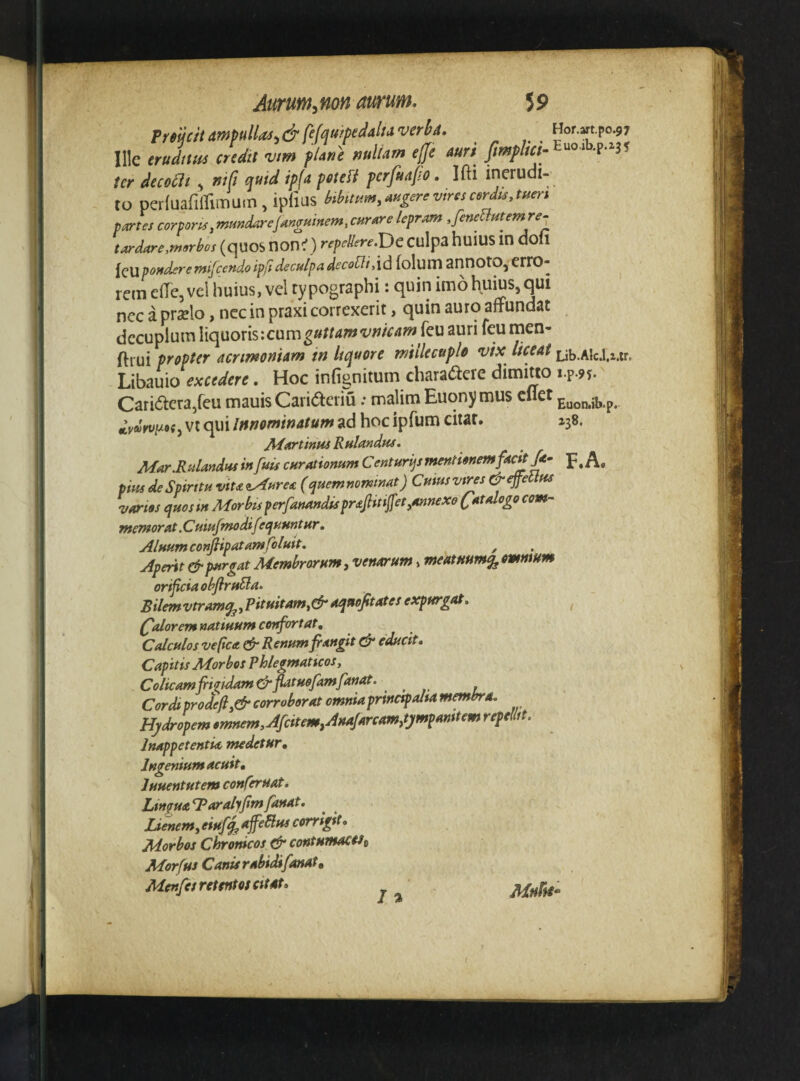 Aurum, non aurum. 59
Proijcit ampullas, & sesquipedalia verba. Hor.art.po.97
Ille eruditus credit vim plane nullam esse auri simplici- Euo.ib.p.235
ter decocti, nisi quid ipsa potest persuasio. Isti inerudi-
to persuasissimum, ipsius bibitum, augere vires cordis, tueri
partes corporis, mundare sanguinem, curare lepram, senectutem re-
tardare, morbos (quos non?) repellere. De culpa huius in dosi
seu pondere miscendo ipsi deculpa decocti, id solum annoto, erro-
rem esse, vel huius, vel typographi: quin imò huius, qui
nec à prælo, nec in praxi correxerit, quin auro affundat
decuplum liquoris: cum guttam vnicam seu auri seu men-
strui propter acrimoniam in liquore millecuplo vix liceat Lib.Alc.l.2.tr.
Libauio excedere. Hoc insignitum charactere dimitto 1.p.95.
Carictera, seu mauis Carictériû: malim Euonymus esset Euon.ib.p.
ἀνώνυμος, vt qui Innominatum ad hoc ipsum citat. 238.
Martinus Rulandus.
Mar. Rulandus in suis curationum Centurijs mentionem facit sæ- F.A.
pius de Spiritu vitæ Aureæ (quem nominat) Cuius vires & effectus
varios quos in Morbis persanandis præstitisset, annexo Catalogo com-
memorat. Cuiusmodi sequuntur.
Aluum constipatam soluit.
Aperit & purgat Membrorum, venarum, meatuumq̃ omnium
orificia obstructa.
Bilem vtramq̃, Pituitam, & aquositates expurgat.
Calorem natiuum confortat.
Calculos vesicæ & Renum frangit & educit.
Capitis Morbos Phlegmaticos,
Colicam frigidam & flatuosam sanat.
Cordi prodest, & corroborat omnia principalia membra.
Hydropem omnem, Ascitem, Anasarcam, tympanitem repellit.
Inappetentiæ medetur.
Ingenium acuit.
Iuuentutem conseruat.
Linguæ Paralysim sanat.
Lienem, eiusq̃ affectus corrigit.
Morbos Chronicos & contumaces,
Morsus Canis rabidi sanat.
Menses retentos citat.
I 2 Mulie-